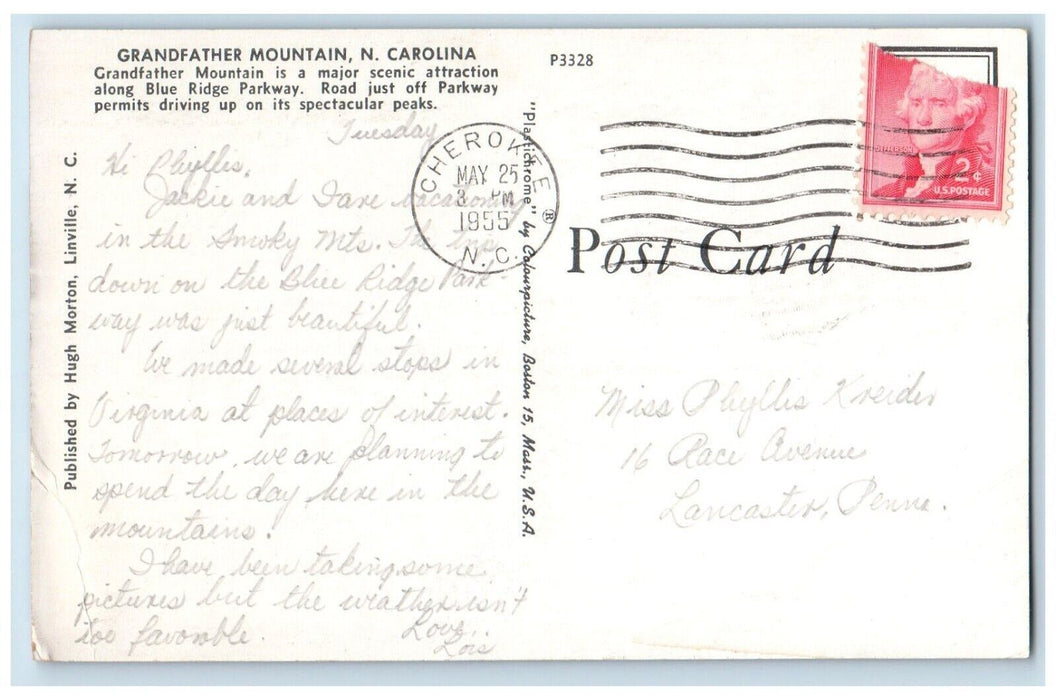 GRANDFATHER MOUNTAIN, N. CAROLINA
Grandfather Mountain is a major scenic attraction
along Blue Ridge Parkway. Road just off Parkway
permits driving up on its spectacular peaks.
Published by Hugh Morton, Linville, N. C.
Tuesday
Hi Phyllis,
Jackie and I are vacationing
in the Smoky Mts. The trip
down on the Blue Ridge Park
way was just beautiful.
We made several stops in
Virginia at places of interest.
Tomorrow, we are planning to
spend the day here in the
mountains.
I have been taking some
pictures but the weather isn't
too favorable.
Love,
Lois
"Plastichrome" ® by Colourpicture, Boston 15, Mass., U.S.A.
P3328
CHEROKEE
MAY 25
3 PM
1955
N.C.
JEFFERSON
2¢
U.S. POSTAGE
Post Card
Miss Phyllis Kreider
16 Race Avenue
Lancaster, Penna.